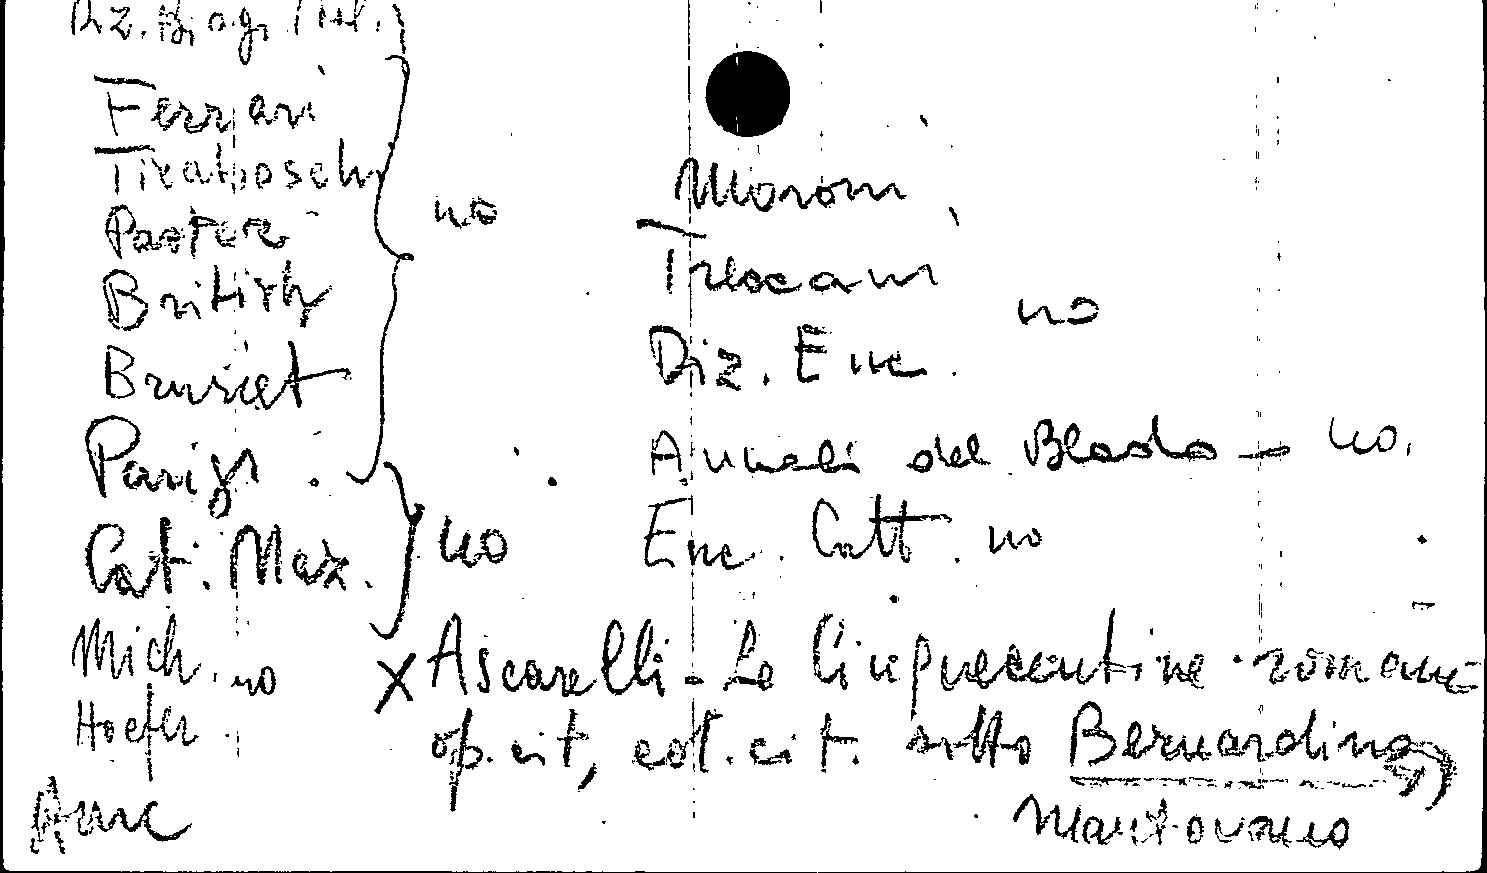 Diz. Biogr. Ital.
Ferrari
Tiraboschi
Pastor
British
Brunet
Parigi.
no
Cat. Max.
no
Mich. no
Hoefer.
Moroni
Treccani
Diz. Enc.
no
Annali del Blado - no.
Enc. Catt. no
X Ascarelli - Le Cinquecentine romane
op. cit, ed. cit. sotto Bernardino,
Mantovano